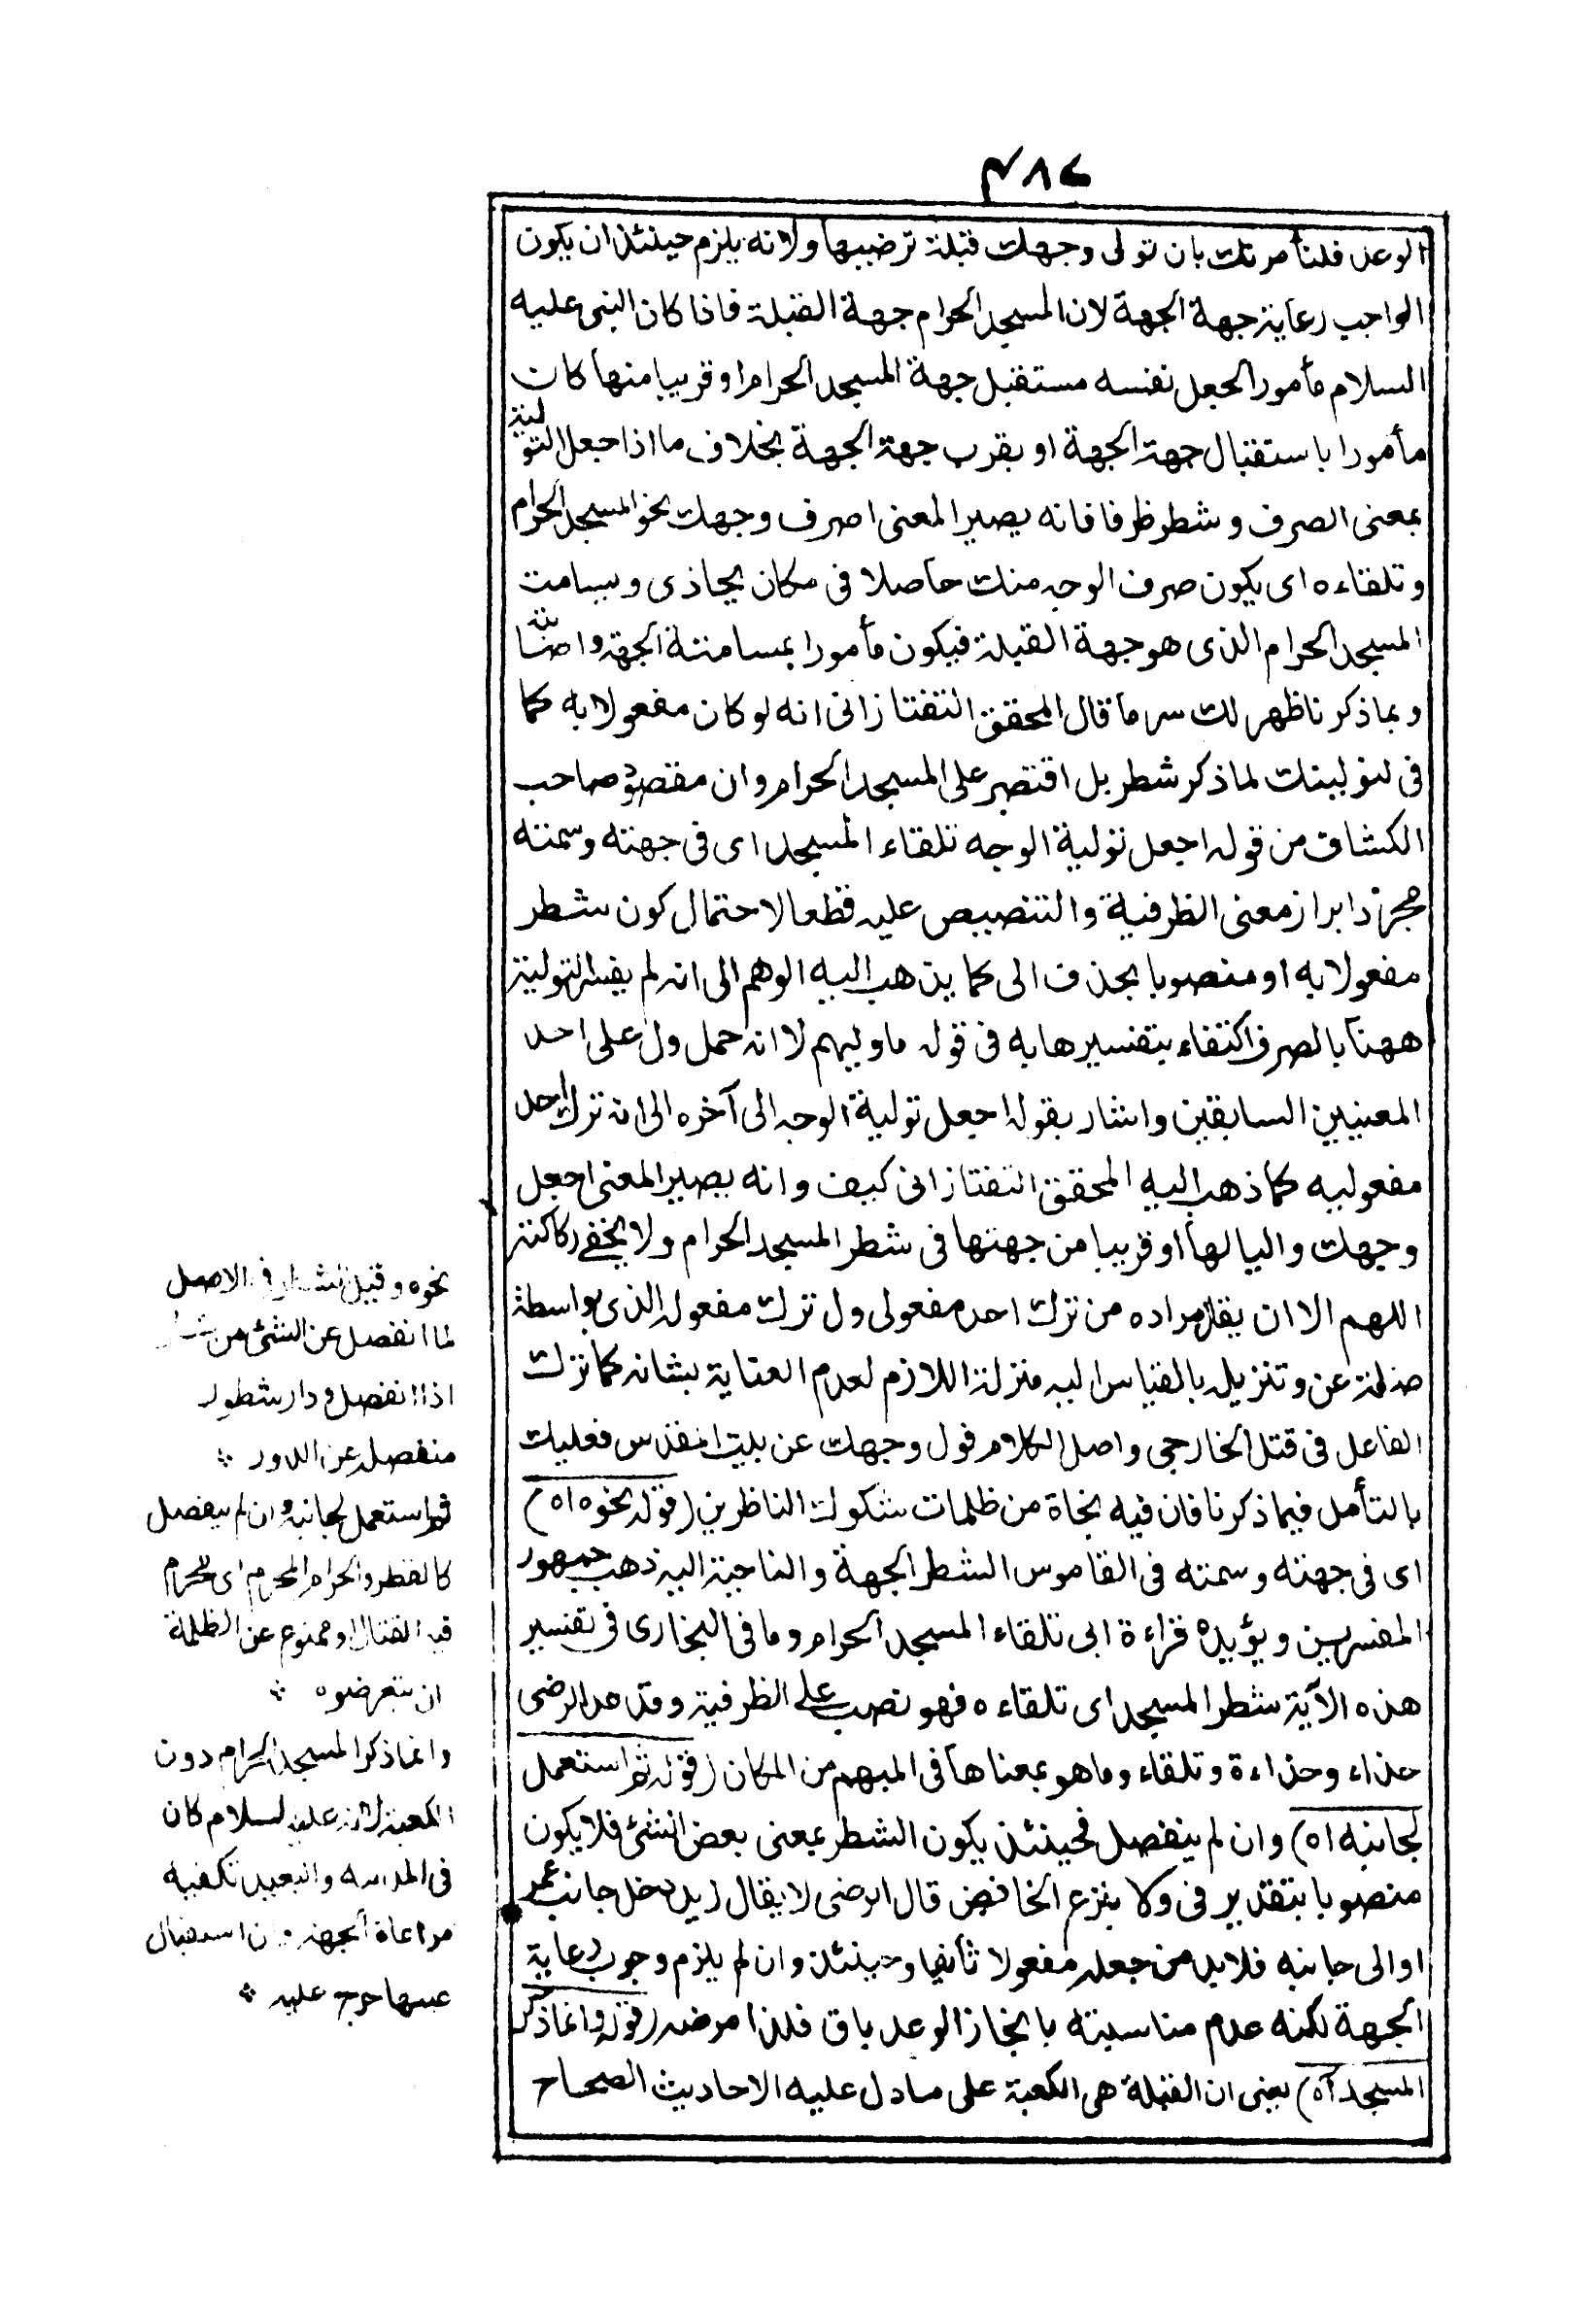 ٤٨٤
الوعد فلنأمرنك بان تولى وجهك قبلة ترضيها ولانه يلزم حينئذ ان يكون
الواجب رعاية جهة الجهة لان المسجد الحرام جهة القبلة فاذا كان النبى عليه
السلام مأمورا لجعل نفسه مستقبل جهة المسجد الحرام او قريبا منها كان
مأمورا باستقبال جهة الجهة او بقرب جهة الجهة بخلاف ما اذا جعل التولية
بمعنى الصرف وشطر ظرفا فانه يصير المعنى اصرف وجهك نحو المسجد الحرام
وتلقاءه اى يكون صرف الوجه منك حاصلا فى مكان يحاذى ويسامت
المسجد الحرام الذى هو جهة القبلة فيكون مأمورا بمسامتة الجهة واصابتها
وبما ذكرنا ظهر لك سر ما قال المحقق التفتازانى انه لو كان مفعولا به كما
فى لنولينك لما ذكر شطر بل اقتصر على المسجد الحرام وان مقصود صاحب
الكشاف من قوله اجعل تولية الوجه تلقاء المسجد اى فى جهته وسمته
مجرد ابراز معنى الظرفية والتنصيص عليه قطعا لاحتمال كون شطر
مفعولا به او منصوبا بحذف الى كما يذهب اليه الوهم الى انه لم يفسر التولية
ههنا بالصرف اكتفاء بتفسيرها به فى قوله ما وليهم لا انه حمل ول على احد
المعنيين السابقين واشار بقوله اجعل تولية الوجه الى آخره الى انه ترك احد
مفعوليه كما ذهب اليه المحقق التفتازانى كيف وانه يصير المعنى اجعل
وجهك واليا لها او قريبا من جهتها فى شطر المسجد الحرام ولا يخفى ركاكته
اللهم الا ان يقال مراده من ترك احد مفعولى ول ترك مفعوله الذى بواسطة
كلمة عن وتنزيله بالقياس اليه منزلة اللازم لعدم العناية بشانه كما ترك
الفاعل فى قتل الخارجى واصل الكلام فول وجهك عن بيت المقدس فعليك
بالتأمل فيما ذكرنا فان فيه نجاة من ظلمات شكوك الناظرين (قوله نحوه اه)
اى فى جهته وسمته فى القاموس الشطر الجهة والناحية اليه ذهب جمهور
المفسرين ويؤيده قراءة ابى تلقاء المسجد الحرام وما فى البخارى فى تفسير
هذه الآية شطر المسجد اى تلقاءه فهو نصب على الظرفية وقد عد الرضى
حذاء وحذاءة وتلقاء وما هو بمعناها فى المبهم من المكان (قوله ثم استعمل
لجانبه اه) وان لم ينفصل فحينئذ يكون الشطر بمعنى بعض الشئ فلا يكون
منصوبا بتقدير فى ولا بنزع الخافض قال الرضى لا يقال زيد دخل جانب عمر
او الى جانبه فلا بد من جعله مفعولا ثانيا وحينئذ وان لم يلزم وجوب رعاية
الجهة لكنه عدم مناسبته بانجاز الوعد باق فلذا مرضه (قوله وانما ذكر
المسجد اه) يعنى ان القبلة هى الكعبة على ما دل عليه الاحاديث الصحاح
نحوه وقيل الشطر فى الاصل
لما انفصل عن الشئ من شطر
اذا انفصل ودار شطور
منفصلة عن الدور
ثم استعمل لجانبه وان لم ينفصل
كالقطر والحرام المحرم اى محرم
فيه القتال او ممنوع عن الظلمة
ان يتعرضوه
وانما ذكر المسجد الحرام دون
الكعبة لانه عليه السلام كان
فى المدينة والبعيد تكفيه
مراعاة الجهة فان استقبال
عينها حرج عليه